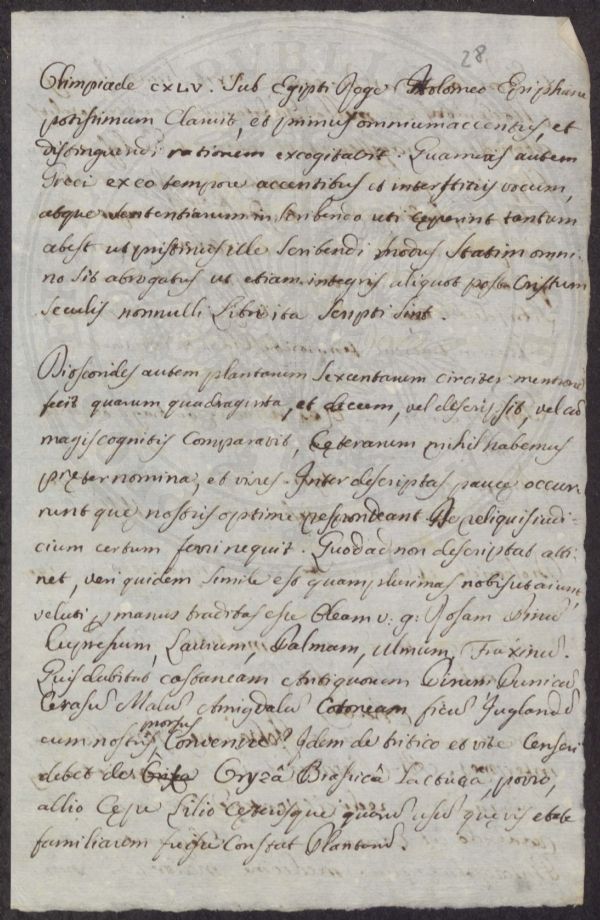 28
Olimpiade CXLV. Sub Egipti Rege Ptolomeo Epiphane
potissimum claruit, et primus omnium accentus, et
distinguendi rationem excogitavit. Quamvis autem
Greci ex eo tempore accentibus et interstitiis vocum,
atque sententiarum in scribendo uti ceperint tantum
abest ut pristinus ille scribendi modus statim omni-
no sit abrogatus ut etiam integris aliquot post Cristum
seculis nonnulli Libri ita scripti sint.
Dioscorides autem plantarum sexcentarum circiter mentionē
fecit quarum quadraginta, et decem, vel descripsit, vel cū
magis cognitis comparavit, Cęterarum nihil habemus
pręter nomina, et vires. Inter descriptas paucę occur-
runt quę nostris optime respondeant De reliquis iudi-
cium certum ferri nequit. Quod ad non descriptas atti-
net, veri quidem simile est quamplurimas nobis ut aiunt,
veluti p manus traditas esse Oleam v: g: Rosam Pinū
Cupresum, Laurum, Palmam, Ulmum, Fraxinū.
Quis dubitat castaneam Antiquorum Pirum Punicū
Cerasū Malū Amigdalū Cotoneam ficū Juglandē
cum nostris prorsus convenire? Idem de tritico et vite censeri
debet de Oryzâ Brasicâ Lactucâ, porro,
allio Cępe Lilio Cęterisque quarū usū quęvis etate
familiarem fuisse constat Plantarū.